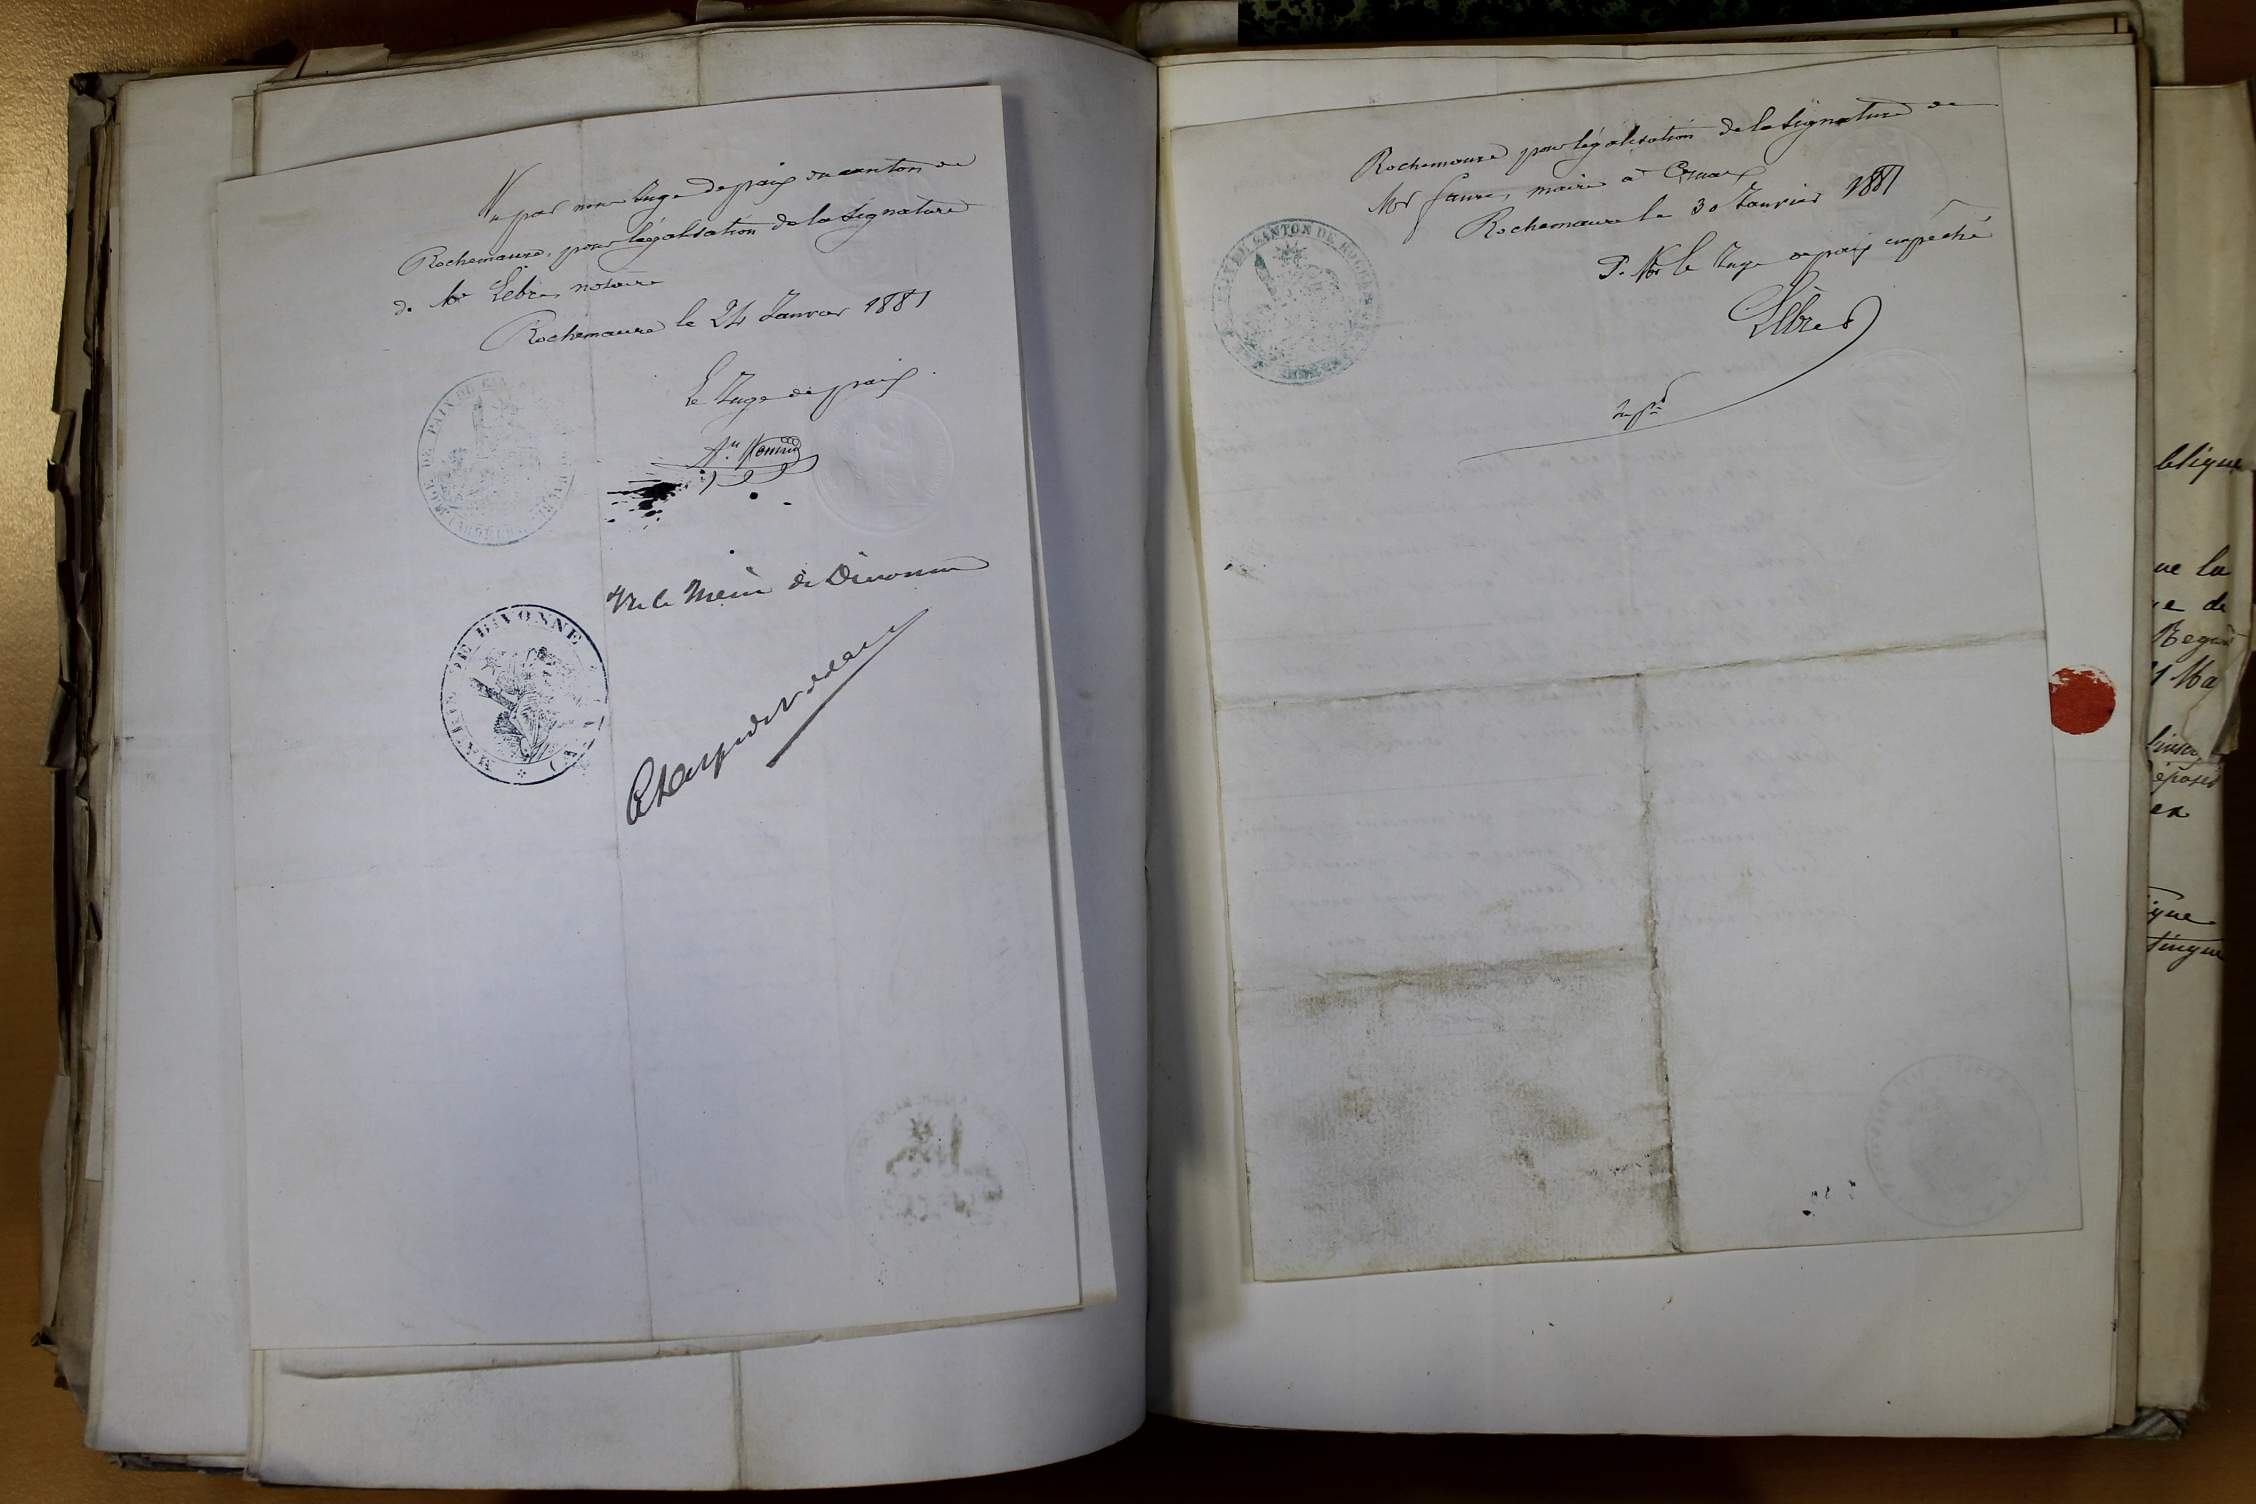 Vu par nous Juge de paix du canton de
Rochemaure, pour légalisation de la signature
de Mr Lèbre, notaire
Rochemaure le 24 Janvier 1881
Le Juge de paix
JUGE DE PAIX DU CAN
Vu le Maire de Divonne
MAIRIE DE DIVONNE
(AIN)
Rochemaure pour légalisation de la signature de
Mr Faure, maire à Cruas
Rochemaure le 30 Janvier 1881
P. Mr le Juge de paix empêché
Lèbre
PAIX DU CANTON DE ROCHEMAURE
blique
ue la
ue de
1 Ma
époser
en